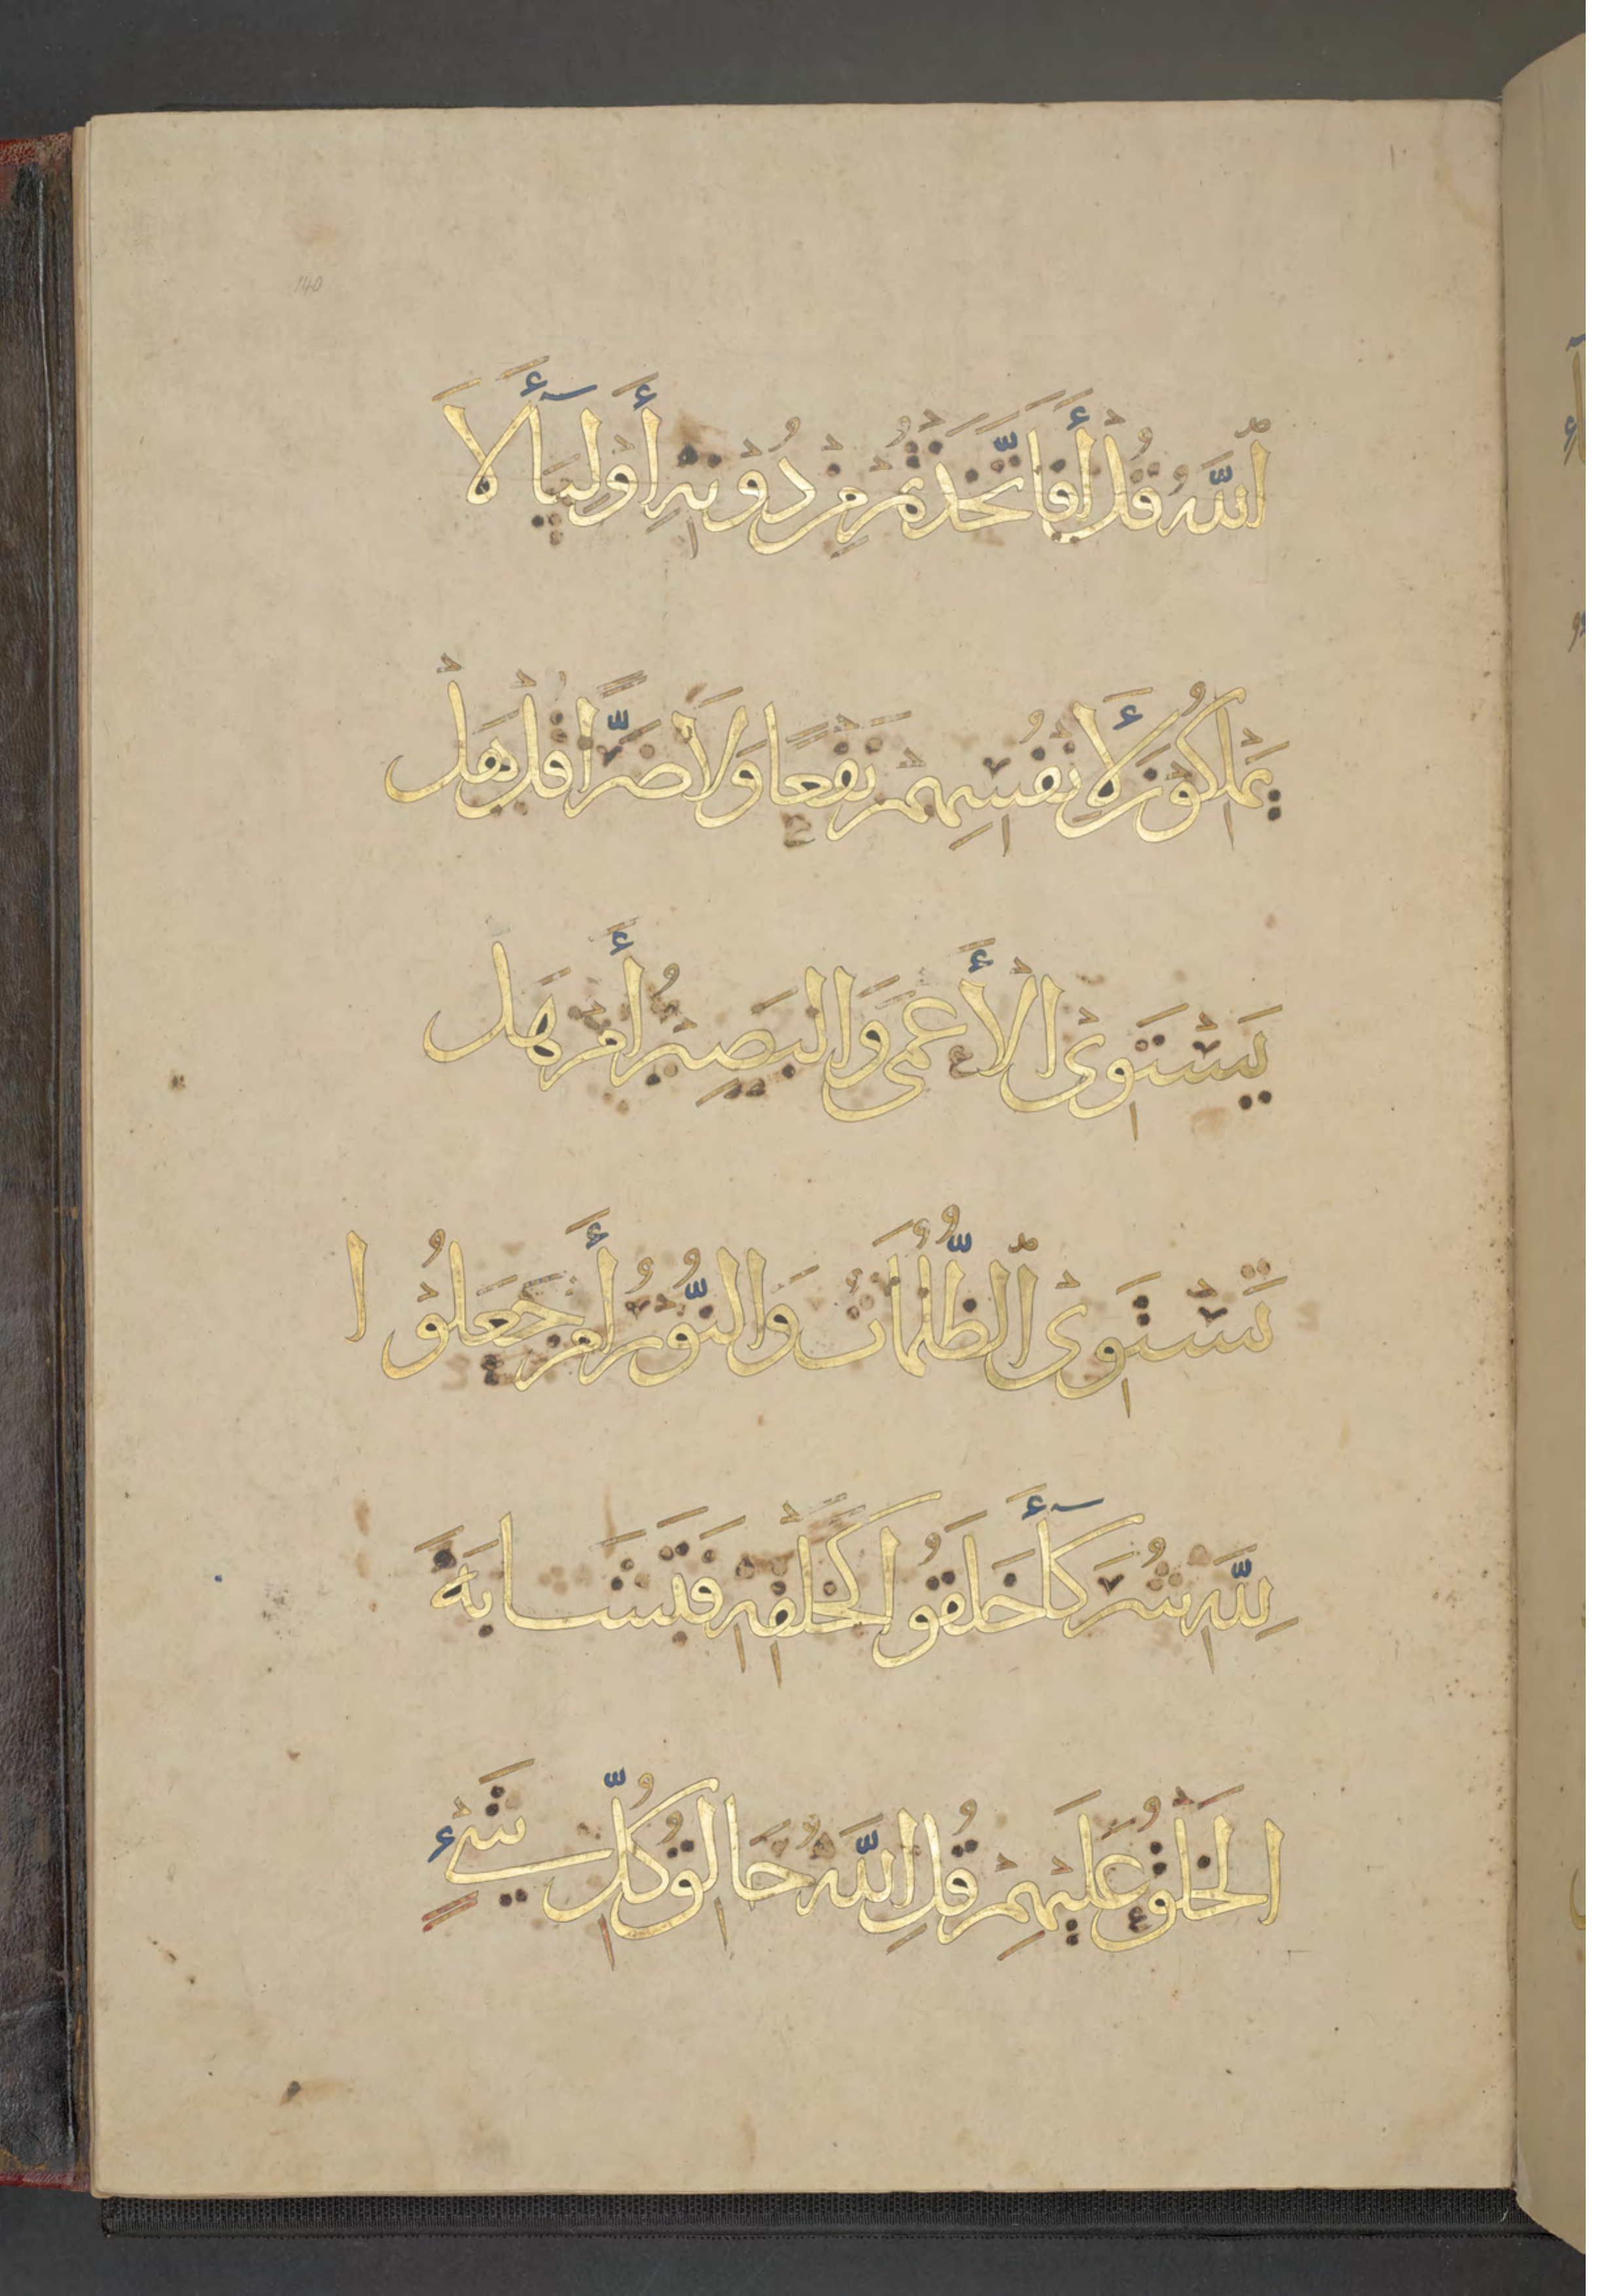 140
ٱللَّهُ قُلْ أَفَاتَّخَذْتُمْ مِنْ دُونِهِ أَوْلِيَآءَ لَا
يَمْلِكُونَ لِأَنْفُسِهِمْ نَفْعًا وَلَا ضَرًّا قُلْ هَلْ
يَسْتَوِى الْأَعْمَى وَالْبَصِيرُ أَمْ هَلْ
تَسْتَوِى ٱلظُّلُمَاتُ وَالنُّورُ أَمْ جَعَلُوا
لِلَّهِ شُرَكَآءَ خَلَقُوا كَخَلْقِهِ فَتَشَابَهَ
الْخَلْقُ عَلَيْهِمْ قُلِ اللَّهُ خَالِقُ كُلِّ شَيْءٍ